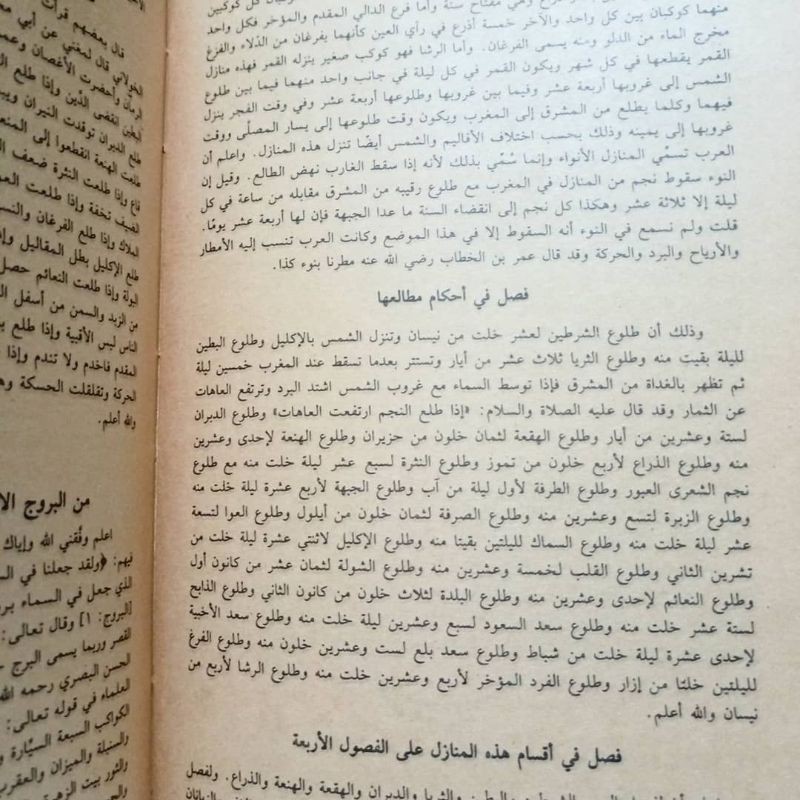 منهما كوكبان بين كل واحد والآخر خمسة أذرع في رأي العين كأنهما يفرغان من الدلاء والفرغ
مخرج الماء من الدلو ومنه يسمى الفرغان. وأما الرشا فهو كوكب صغير ينزله القمر فهذه منازل
القمر يقطعها في كل شهر ويكون القمر في كل ليلة في جانب واحد منهما فيما بين طلوع
الشمس إلى غروبها أربعة عشر وفيما بين غروبها وطلوعها أربعة عشر وفي وقت الفجر ينزل
فيهما وكلما يطلع من المشرق إلى المغرب ويكون وقت طلوعها إلى يسار المصلّى ووقت
غروبها إلى يمينه وذلك بحسب اختلاف الأقاليم والشمس أيضًا تنزل هذه المنازل. واعلم أن
العرب تسمّي المنازل الأنواء وإنما سُمّي بذلك لأنه إذا سقط الغارب نهض الطالع. وقيل إن
النوء سقوط نجم من المنازل في المغرب مع طلوع رقيبه من المشرق مقابله من ساعة في كل
ليلة إلا ثلاثة عشر وهكذا كل نجم إلى انقضاء السنة ما عدا الجبهة فإن لها أربعة عشر يومًا.
قلت ولم نسمع في النوء أنه السقوط إلا في هذا الموضع وكانت العرب تنسب إليه الأمطار
والأرياح والبرد والحركة وقد قال عمر بن الخطاب رضي الله عنه مطرنا بنوء كذا.
فصل في أحكام مطالعها
وذلك أن طلوع الشرطين لعشر خلت من نيسان وتنزل الشمس بالإكليل وطلوع البطين
لليلة بقيت منه وطلوع الثريا ثلاث عشر من أيار وتستتر بعدما تسقط عند المغرب خمسين ليلة
ثم تظهر بالغداة من المشرق فإذا توسط السماء مع غروب الشمس اشتد البرد وترتفع العاهات
عن الثمار وقد قال عليه الصلاة والسلام: «إذا طلع النجم ارتفعت العاهات» وطلوع الدبران
لستة وعشرين من أيار وطلوع الهقعة لثمان خلون من حزيران وطلوع الهنعة لإحدى وعشرين
منه وطلوع الذراع لأربع خلون من تموز وطلوع النثرة لسبع عشر ليلة خلت منه مع طلوع
نجم الشعرى العبور وطلوع الطرفة لأول ليلة من آب وطلوع الجبهة لأربع عشرة ليلة خلت منه
وطلوع الزبرة لتسع وعشرين منه وطلوع الصرفة لثمان خلون من أيلول وطلوع العوا لتسعة
عشر ليلة خلت منه وطلوع السماك لليلتين بقيتا منه وطلوع الإكليل لاثنتي عشرة ليلة خلت من
تشرين الثاني وطلوع القلب لخمسة وعشرين منه وطلوع الشولة لثمان عشر من كانون أول
وطلوع النعائم لإحدى وعشرين منه وطلوع البلدة لثلاث خلون من كانون الثاني وطلوع الذابح
لستة عشر خلت منه وطلوع سعد السعود لسبع وعشرين ليلة خلت منه وطلوع سعد الأخبية
لإحدى عشرة ليلة خلت من شباط وطلوع سعد بلع لست وعشرين خلون منه وطلوع الفرغ
لليلتين خلتا من إزار وطلوع الفرد المؤخر لأربع وعشرين خلت منه وطلوع الرشا لأربع من
نيسان والله أعلم.
فصل في أقسام هذه المنازل على الفصول الأربعة
والثريا والدبران والهقعة والهنعة والذراع. ولفصل
قال بعضهم قرأت
الخولاني قال لمغني عن أبي
الرمان وأحضرت الأغصان
البطين انقضى الدَّين وإذا طلع
طلع الدبران توقدت النيران
طلعت الهنعة انقطعوا إلى
قاع وإذا طلعت النثرة
الضيف تخفة وإذا طلعت
الملاك وإذا طلع الفرغان
طلع الإكليل بطل المقاليل
البولة وإذا طلعت النعائم حصل
من الزبد والسمن من أسفل
الناس ليس الأقبية وإذا طلع
المقدم فاخدم ولا تندم وإذا
الحركة وتقلقلت الحسكة
والله أعلم.
من البروج
اعلم وفّقني الله وإياك
فيهم: ﴿ولقد جعلنا في
الذي جعل في السماء
[البروج: ١] وقال تعالى:
القصر وربما يسمى البرج
الحسن البصري رحمه الله
العلماء في قوله تعالى:
الكواكب السبعة السيّارة
والسنبلة والميزان والعقرب
والثور بيت الزهرة